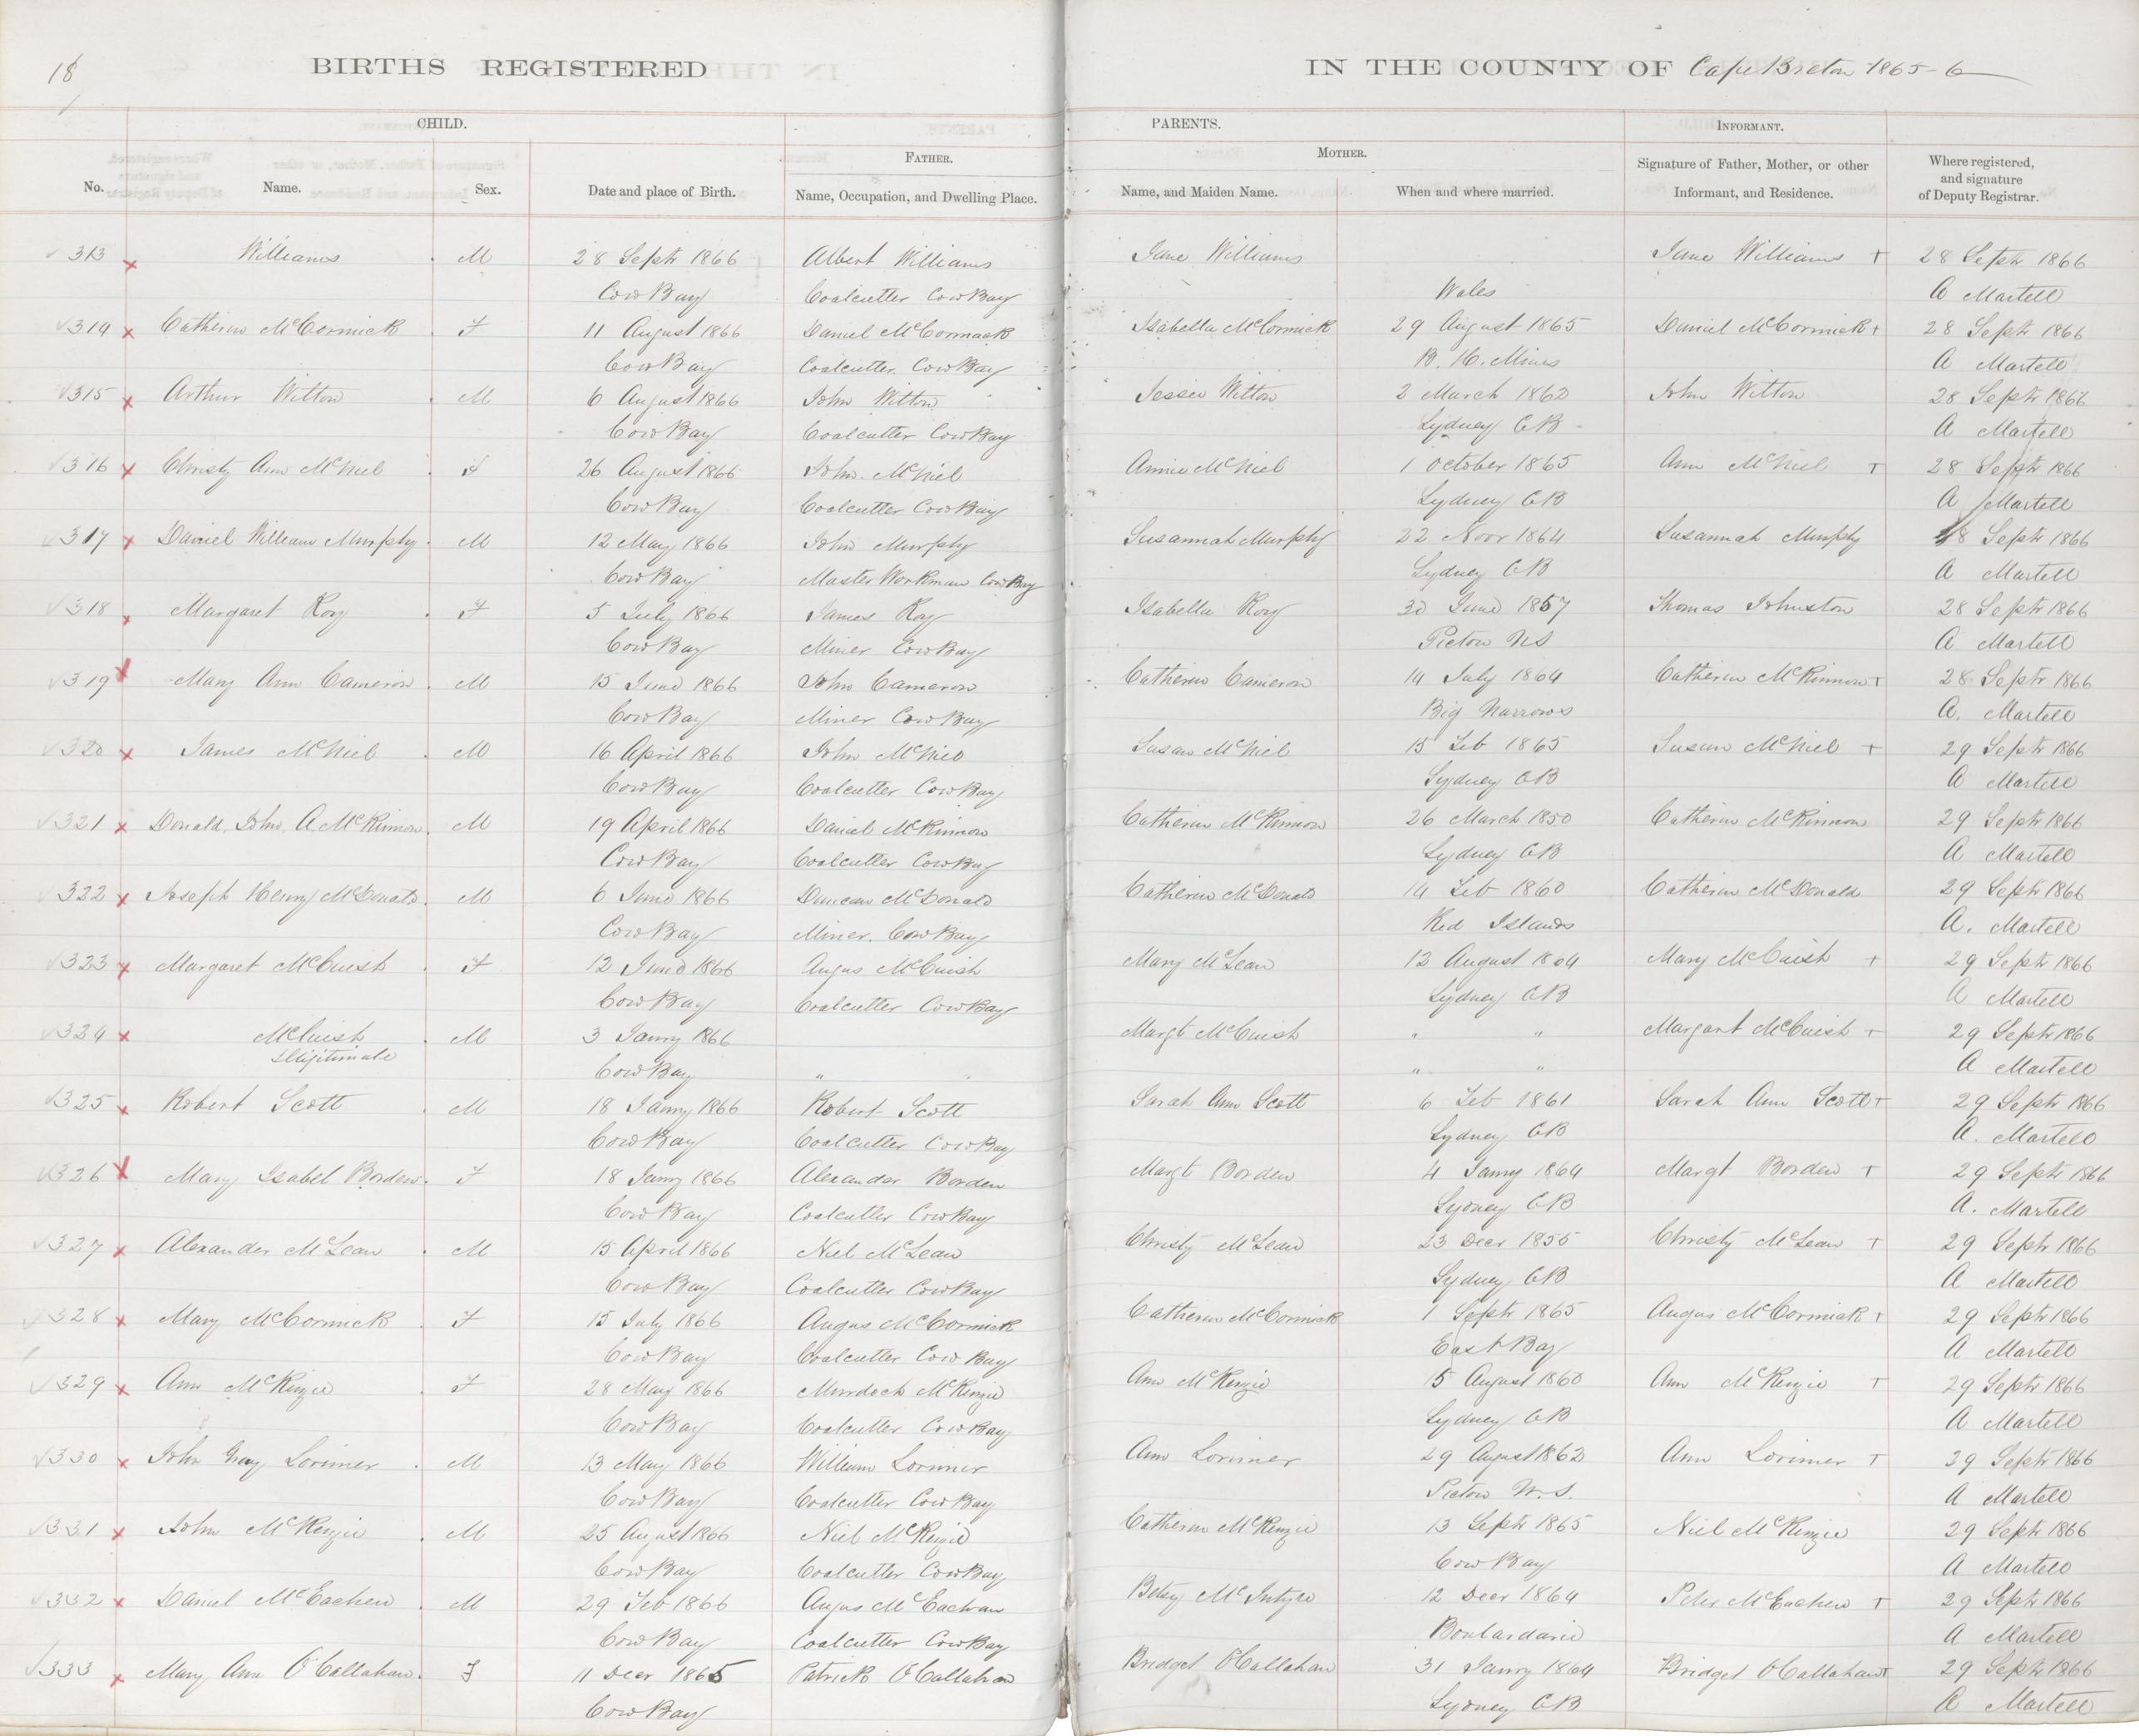 18
BIRTHS REGISTERED IN THE COUNTY OF Cape Breton 1865-6
CHILD. PARENTS. INFORMANT.
FATHER. MOTHER.
No. Name. Sex. Date and place of Birth. Name, Occupation, and Dwelling Place. Name, and Maiden Name. When and where married. Signature of Father, Mother, or other Informant, and Residence. Where registered, and signature of Deputy Registrar.
313 Williams M 28 Septr 1866 Albert Williams Jane Williams Jane Williams + 28 Septr 1866
Cow Bay Coalcutter Cow Bay Wales A Martell
314 Catherine McCormick F 11 August 1866 Daniel McCormack Isabella McCormick 29 August 1865 Daniel McCormick + 28 Septr 1866
Cow Bay Coalcutter. Cow Bay B. H. Mines A Martell
315 Arthur Witton M 6 August 1866 John Witton Jessie Witton 2 March 1862 John Witton 28 Septr 1866
Cow Bay Coalcutter Cow Bay Sydney CB A Martell
316 Christy Ann McNiel F 26 August 1866 John McNiel Annie McNiel 1 October 1865 Ann McNiel + 28 Septr 1866
Cow Bay Coalcutter Cow Bay Sydney CB A Martell
317 Daniel William Murphy M 12 May 1866 John Murphy Susannah Murphy 22 Novr 1864 Susannah Murphy 28 Septr 1866
Cow Bay Master Workman Cow Bay Sydney CB A Martell
318 Margaret Roy F 5 July 1866 James Roy Isabella Roy 30 June 1857 Thomas Johnston 28 Septr 1866
Cow Bay Miner Cow Bay Pictou NS A Martell
319 Mary Ann Cameron M 15 June 1866 John Cameron Catherine Cameron 14 July 1864 Catherine McKinnon + 28 Septr 1866
Cow Bay Miner Cow Bay Big Narrows A. Martell
320 James McNiel M 16 April 1866 John McNiel Susan McNiel 15 Feb 1865 Susan McNiel + 29 Septr 1866
Cow Bay Coalcutter Cow Bay Sydney CB A Martell
321 Donald. John. A. McKinnon M 19 April 1866 Daniel McKinnon Catherine McKinnon 26 March 1850 Catherine McKinnon 29 Septr 1866
Cow Bay Coalcutter Cow Bay Sydney CB A Martell
322 Joseph Henry McDonald M 6 June 1866 Duncan McDonald Catherine McDonald 14 Feb 1860 Catherine McDonald 29 Septr 1866
Cow Bay Miner. Cow Bay Red Islands A. Martell
323 Margaret McCuish F 12 June 1866 Angus McCuish Mary McLean 12 August 1864 Mary McCuish + 29 Septr 1866
Cow Bay Coalcutter Cow Bay Sydney CB A Martell
324 McCuish M 3 Janry 1866 Margt McCuish " " Margart McCuish + 29 Septr 1866
Illigitimate Cow Bay " " " " A Martell
325 Robert Scott M 18 Janry 1866 Robert Scott Sarah Ann Scott 6 Feb 1861 Sarah Ann Scott + 29 Septr 1866
Cow Bay Coalcutter Cow Bay Sydney CB A. Martell
326 Mary Isabel Borden F 18 Janry 1866 Alexander Borden Margt Borden 4 Janry 1864 Margt Borden + 29 Septr 1866
Cow Bay Coalcutter Cow Bay Sydney CB A. Martell
327 Alexander McLean M 15 April 1866 Niel McLean Christy McLean 23 Decr 1855 Christy McLean + 29 Septr 1866
Cow Bay Coalcutter Cow Bay Sydney CB A Martell
328 Mary McCormick F 15 July 1866 Angus McCormick Catherine McCormick 1 Septr 1865 Angus McCormick + 29 Septr 1866
Cow Bay Coalcutter Cow Bay East Bay A Martell
329 Ann McKenzie F 28 May 1866 Murdoch McKenzie Ann McKenzie 15 August 1860 Ann McKenzie + 29 Septr 1866
Cow Bay Coalcutter Cow Bay Sydney CB A Martell
330 John Gray Lorimer M 13 May 1866 William Lorimer Ann Lorimer 29 August 1862 Ann Lorimer + 29 Septr 1866
Cow Bay Coalcutter Cow Bay Pictou N.S. A Martell
331 John McKenzie M 25 August 1866 Niel McKenzie Catherine McKenzie 13 Septr 1865 Niel McKenzie 29 Septr 1866
Cow Bay Coalcutter Cow Bay Cow Bay A Martell
332 Daniel McEachen M 29 Feb 1866 Angus McEachran Betsy McIntyre 12 Decr 1864 Peter McEachen + 29 Septr 1866
Cow Bay Coalcutter Cow Bay Boulardarie A Martell
333 Mary Ann O'Callahan F 11 Decr 1865 Patrick O'Callahan Bridget O'Callahan 31 Janry 1864 Bridget O'Callahan + 29 Septr 1866
Cow Bay Sydney CB A Martell